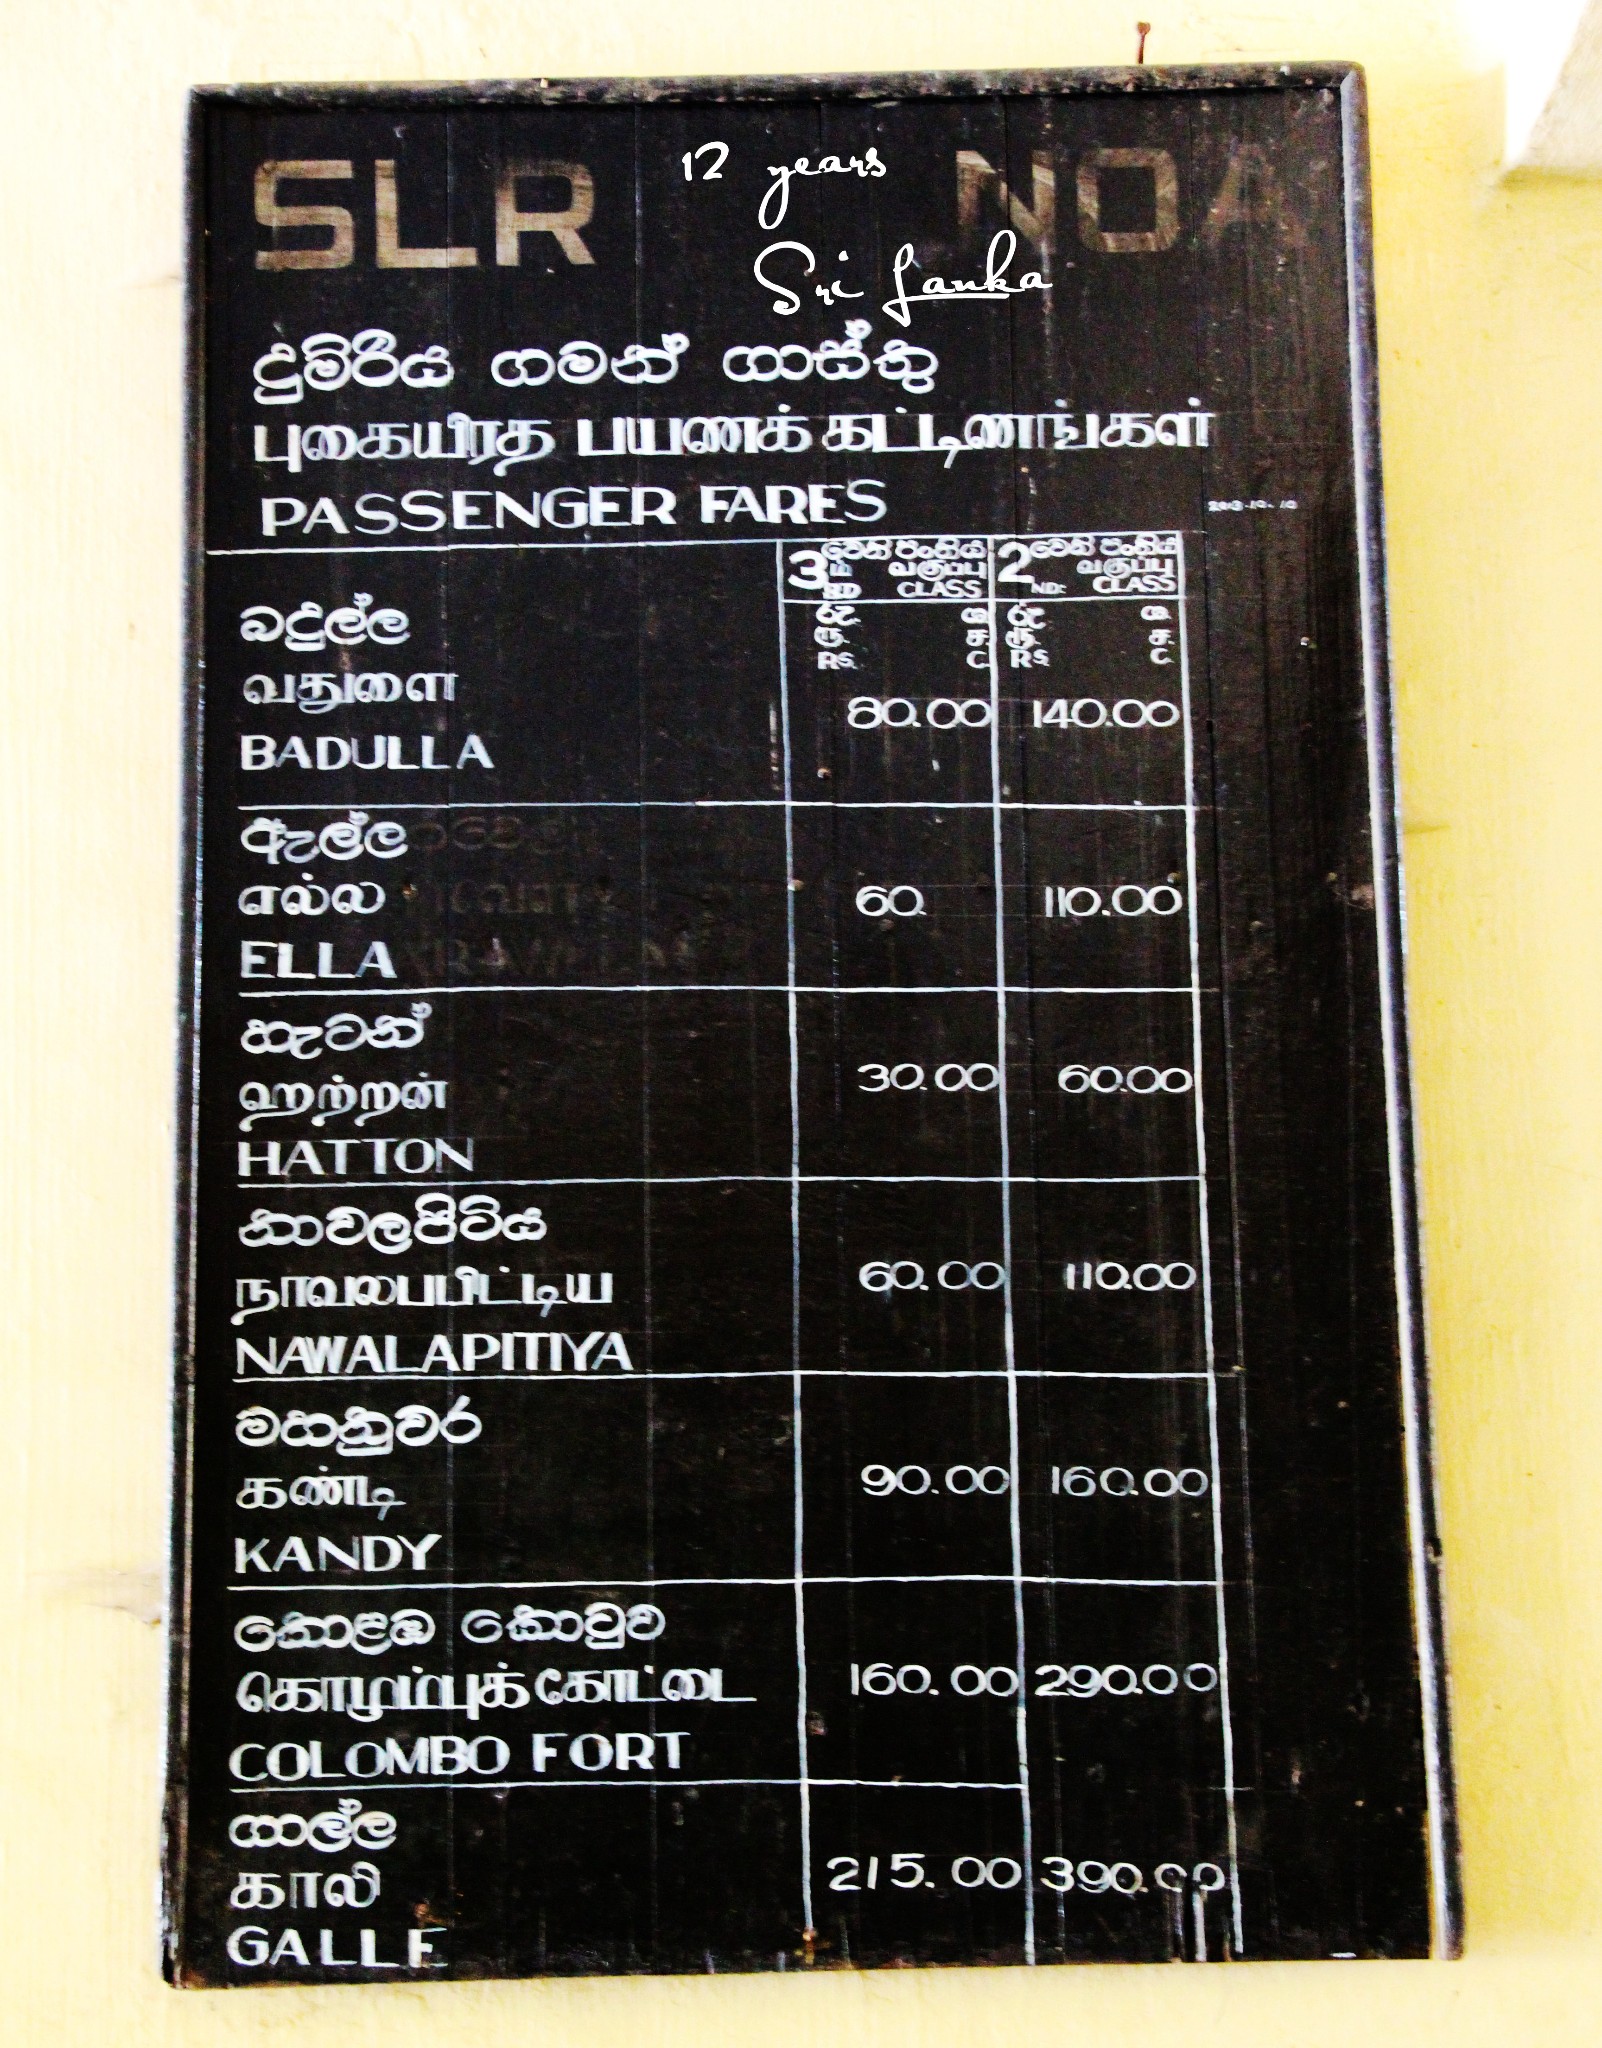 SLR NOA
12 years
Sri Lanka
දුම්රිය ගමන් ගාස්තු
புகையிரத பயணக் கட்டிணங்கள்
PASSENGER FARES
3 වෙනි පංතිය 2 වෙනි පංතිය
ம் வகுப்பு வகுப்பு
RD CLASS ND: CLASS
රු. ශ. රු. ශ.
ரூ. ச. ரூ. ச.
Rs. C. Rs. C.
බදුල්ල
வதுளை
80.00 140.00
BADULLA
ඇල්ල
எல்ல 60. 110.00
ELLA
හැටන්
ஹற்றன் 30.00 60.00
HATTON
නාවලපිටිය
நாவலபபிட்டிய 60.00 110.00
NAWALAPITIYA
මහනුවර
கண்டி 90.00 160.00
KANDY
කොළඹ කොටුව
கொழும்புக் கோட்டை 160.00 290.00
COLOMBO FORT
ගාල්ල
காலி 215.00 390.00
GALLE